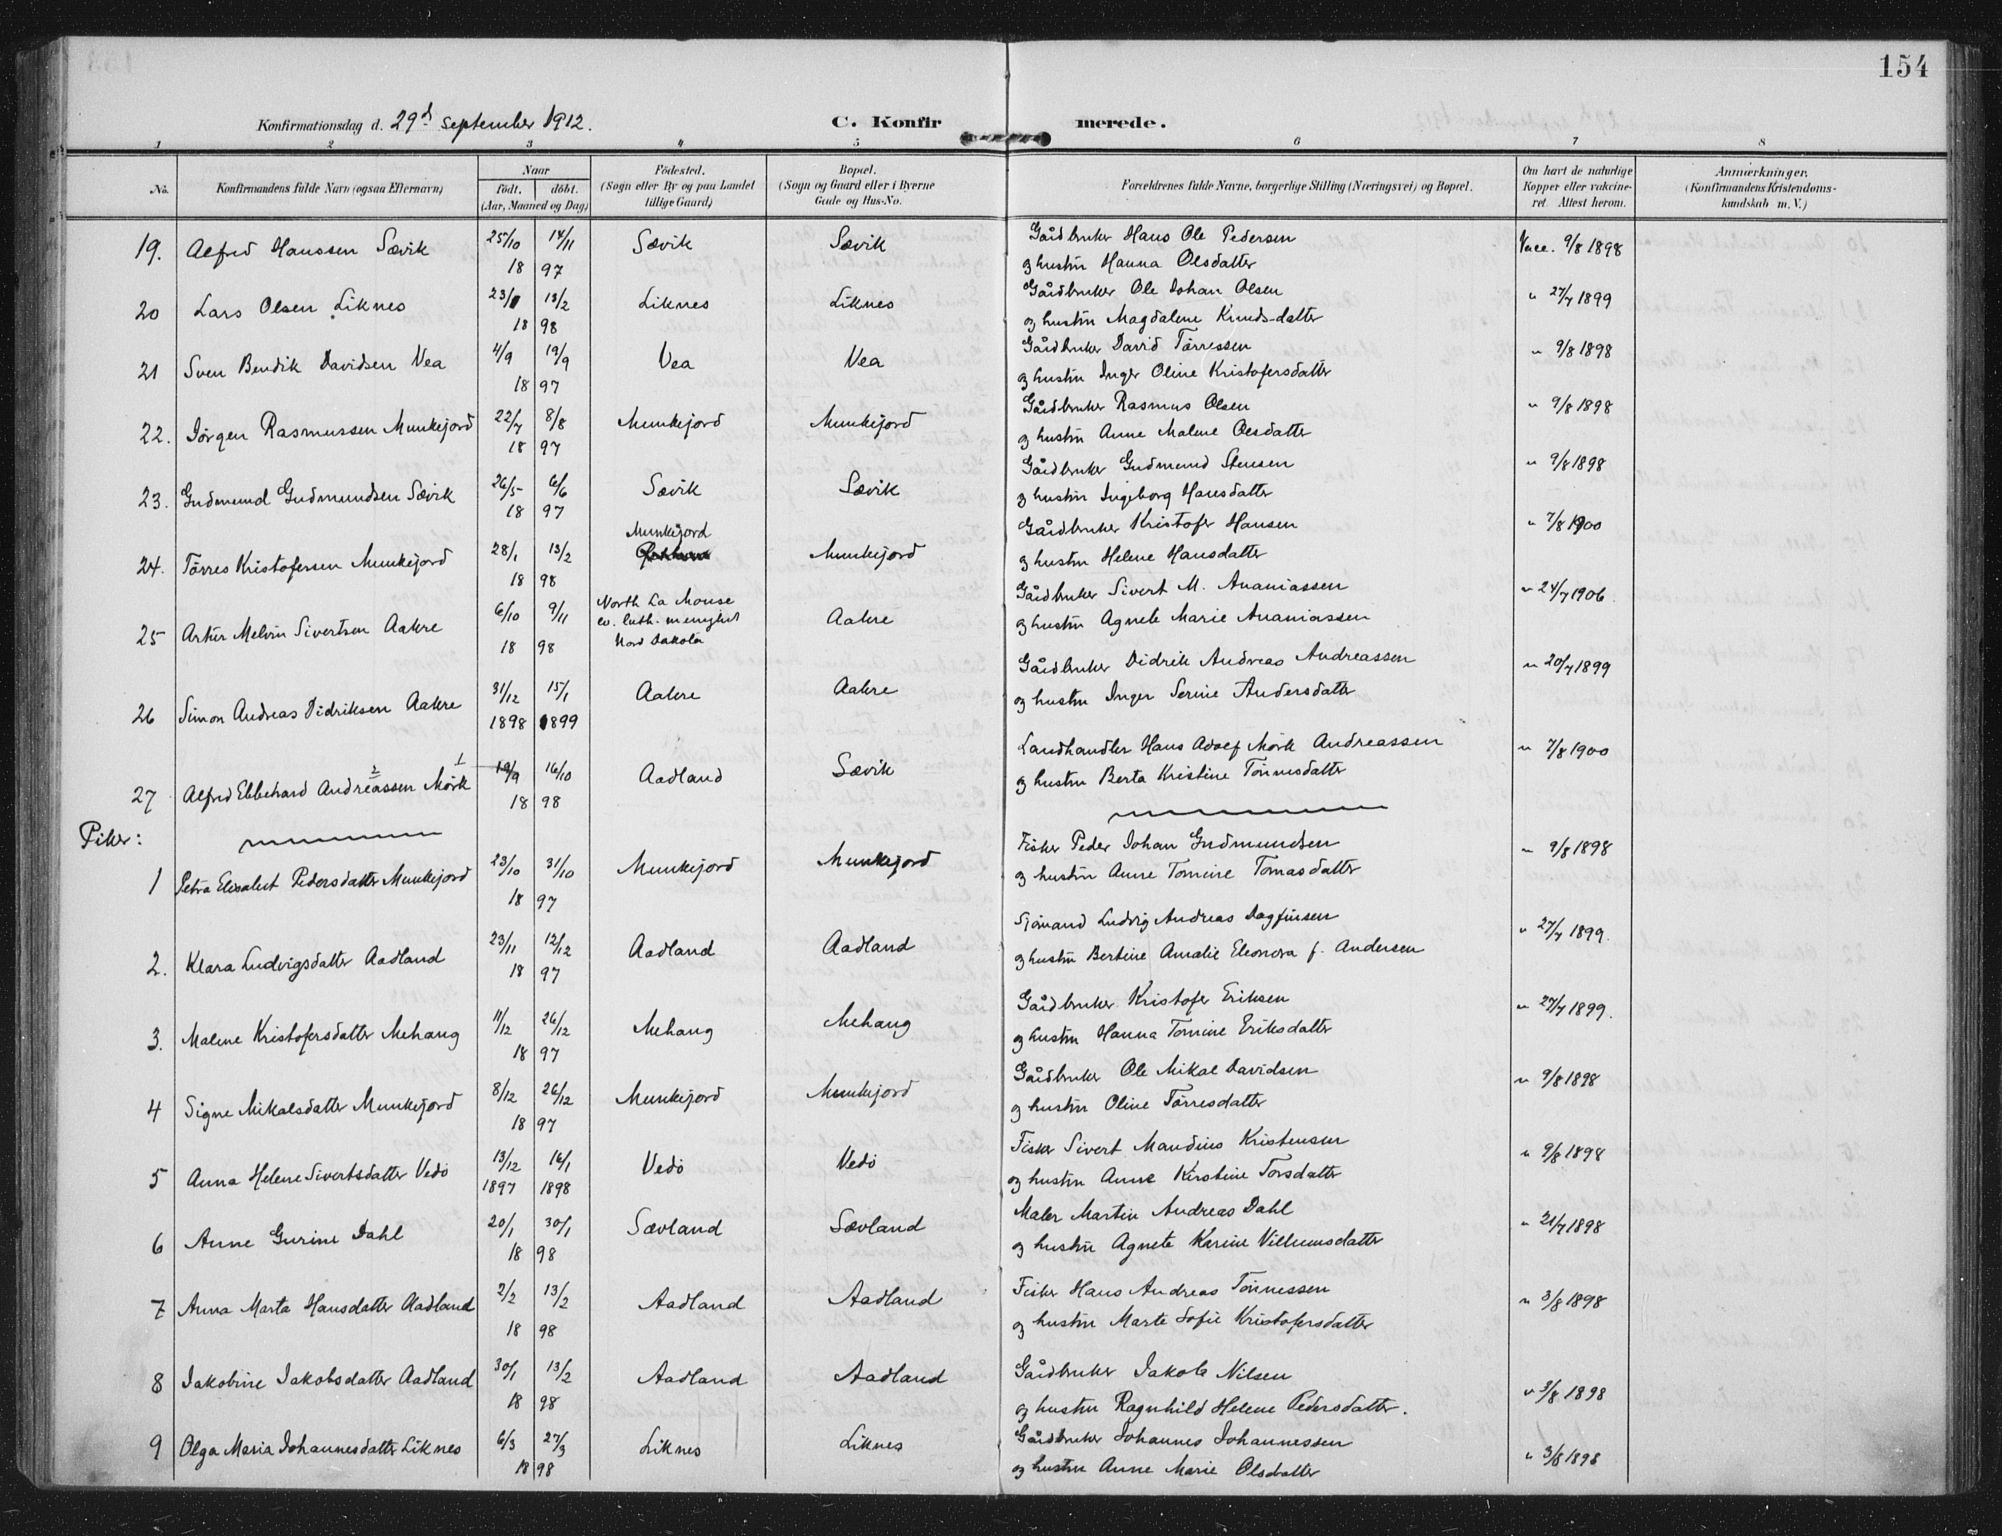 154
Konfirmationsdag d. 29d september 1912.
C. Konfirmerede.
1 2 3 4 5 6 7 8
No. Konfirmandens fulde Navn (ogsaa Efternavn) Naar født. døbt. (Aar, Maaned og Dag) Fødested. (Sogn eller By og paa Landet tillige Gaard) Bopæl. (Sogn og Gaard eller i Byerne Gade og Hus-No. Forældrenes fulde Navne, borgerlige Stilling (Næringsvei) og Bopæl. Om havt de naturlige Kopper eller vakcineret. Attest herom. Anmærkninger. (Konfirmandens Kristendomskundskab m. V.)
19. Alfred Hanssen Sævik 25/10 14/11 Sævik Sævik Gårdbruker Hans Ole Pedersen Vacc. 9/8 1898
18 97 og hustru Hanna Olsdatter
20 Lars Olsen Liknes 23/1 13/2 Liknes Liknes Gårdbruker Ole Johan Olsen " 27/7 1899
18 98 og hustru Magdalene Knuds-datter
21 Sven Bendik Davidsen Vea 4/9 19/9 Vea Vea Gårdbruker David Törressen " 9/8 1898
18 97 og hustru Inger Oline Kristofersdatter
22. Jørgen Rasmussen Munkejord 22/7 8/8 Munkejord Munkejord Gårdbruker Rasmus Olsen " 9/8 1898
18 97 og hustru Anne Malene Olsdatter
23. Gudmund Gudmundsen Sævik 26/5 6/6 Sævik Sævik Gårdbruker Gudmund Stensen " 9/8 1898
18 97 og hustru Ingeborg Hansdatter
24. Törres Kristofersen Munkejord 28/1 13/2 Munkejord Munkejord Gårdbruker Kristofer Hansen " 7/8 1900
18 98 og hustru Helene Hansdatter
25 Artur Melvin Sivertsen Aakre 6/10 9/11 North La Mouse ev. luth. menighet Nord Dakota Aakre Gårdbruker Sivert M. Ananiassen " 24/7 1906
18 98 og hustru Agnete Marie Ananiassen
26 Simon Andreas Didriksen Aakre 31/12 15/1 Aakre Aakre Gårdbruker Didrik Andreas Andreassen " 20/7 1899
1898 1899 og hustru Inger Serine Andersdatter
27 Alfred Ebbehard Andreassen Mörk 2 1 19/9 16/10 Aadland Sævik Landhandler Hans Adolf Mörk Andreassen " 7/8 1900
18 98 og hustru Berta Kristine Tönnesdatter
Piker:
1 Petra Elisabet Pedersdatter Munkejord 23/10 31/10 Munkejord Munkejord Fisker Peder Johan Gudmundsen " 9/8 1898
18 97 og hustru Anne Tomine Tomasdatter
2. Klara Ludvigsdatter Aadland 23/11 12/12 Aadland Aadland Sjömand Ludvig Andreas Dagfinsen " 27/7 1899.
18 97 og hustru Bertine Amalie Eleonora f. Andersen
3. Malene Kristofersdatter Mehang 11/12 26/12 Mehang Mehang Gårdbruker Kristofer Eriksen " 27/7 1899.
18 97 og hustru Hanna Tomine Eriksdatter
4 Signe Mikalsdatter Munkejord 8/12 26/12 Munkejord Munkejord Gårdbruker Ole Mikal Davidsen " 9/8 1898
18 97 og hustru Oline Törresdatter
5 Anna Helene Sivertsdatter Vedö 13/12 16/1 Vedö Vedö Fisker Sivert Mandius Kristensen " 9/8 1898
1897 1898 og hustru Anne Kirstine Torsdatter
6 Anne Gurine Dahl 20/1 30/1 Sævland Sævland Maler Martin Andreas Dahl " 21/7 1898
18 98 og hustru Agnete Karine Villumsdatter
7 Anna Marta Hansdatter Aadland 2/2 13/2 Aadland Aadland Fisker Hans Andreas Tönnessen " 3/8 1898
18 98 og hustru Marte Sofie Kristofersdatter
8 Jakobine Jakobsdatter Aadland 30/1 13/2 Aadland Aadland Gårdbruker Jakob Nilsen " 3/8 1898
18 98 og hustru Ragnhild Helene Pedersdatter.
9 Olga Maria Johannesdatter Liknes 6/3 27/3 Liknes Liknes Gårdbruker Johannes Johannessen " 3/8 1898
18 98 og hustru Anne Marie Olsdatter